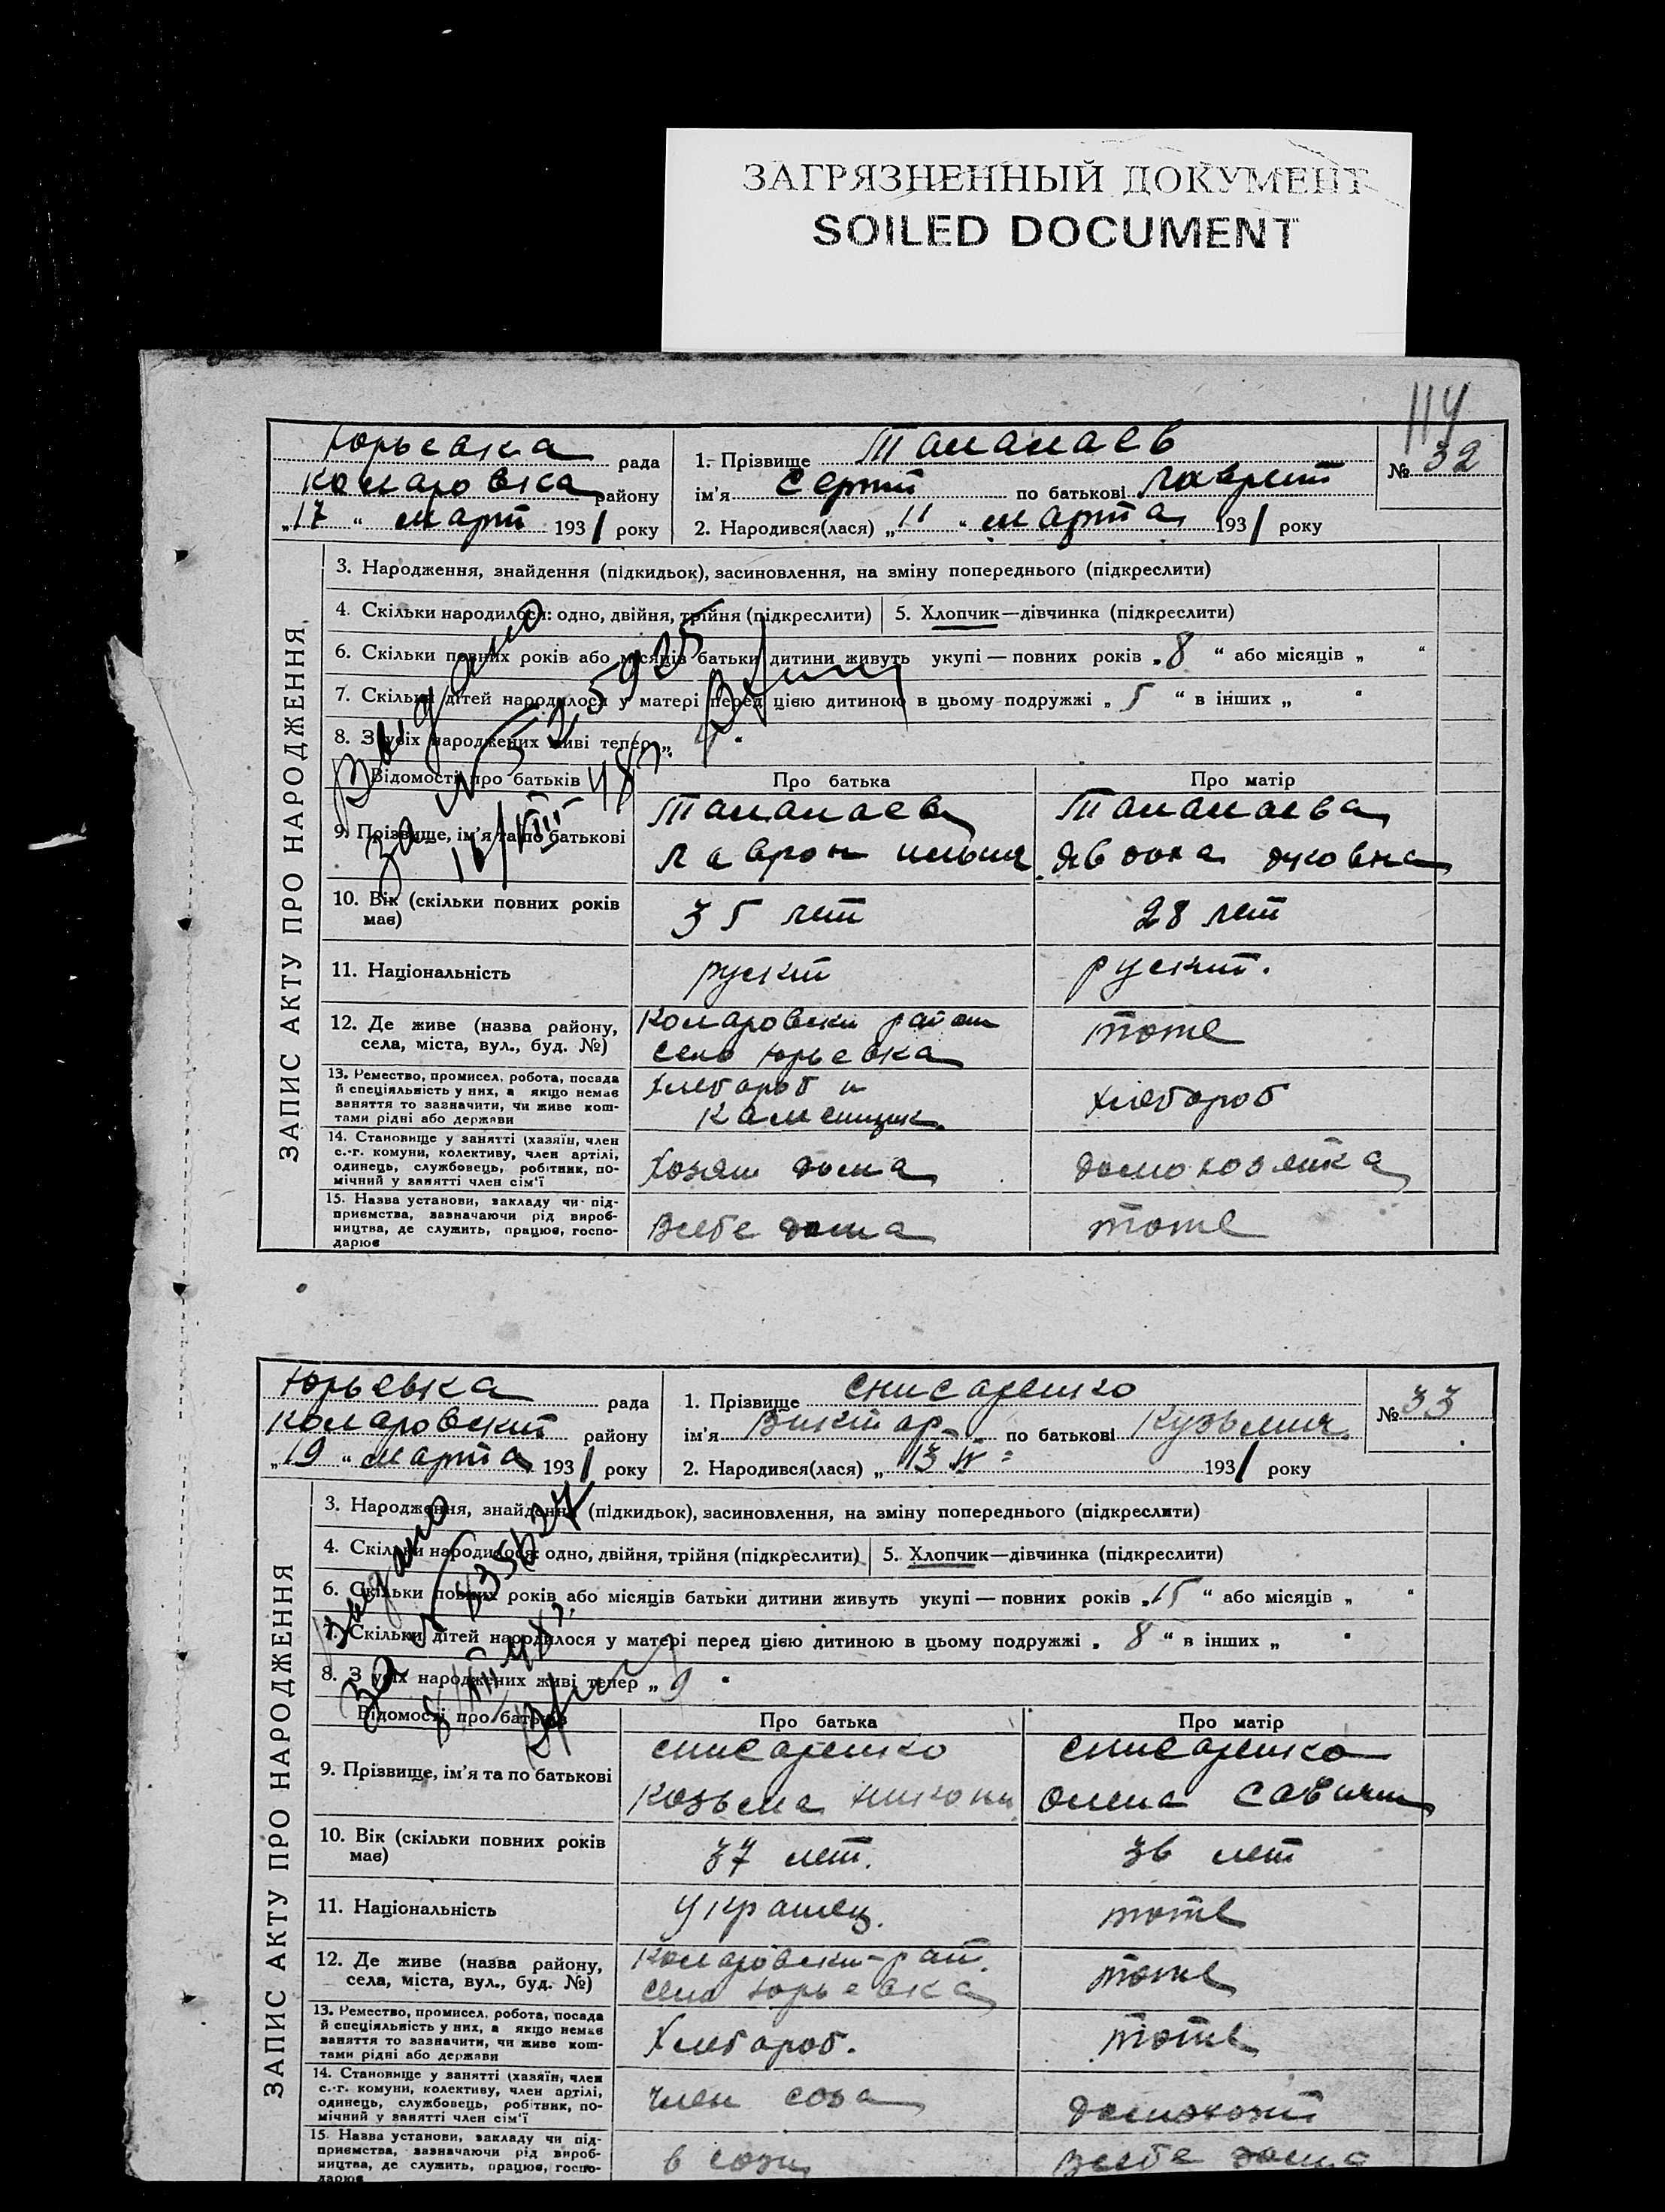 ЗАГРЯЗНЕННЫЙ ДОКУМЕНТ
SOILED DOCUMENT
114
Юрьевка рада
Комаровка району
„17 “ март 1931 року
1. Прізвище Тананаев
ім'я Сергій по батькові
2. Народився(лася) „11 “ марта 1931 року
№ 32
ЗАПИС АКТУ ПРО НАРОДЖЕННЯ
3. Народження, знайдення (підкидьок), засиновлення, на зміну попереднього (підкреслити)
4. Скільки народилося: одно, двійня, трійня (підкреслити) 5. Хлопчик—дівчинка (підкреслити)
6. Скільки повних років або місяців батьки дитини живуть укупі — повних років „8 “ або місяців „ “
7. Скільки дітей народилося у матері перед цією дитиною в цьому подружжі „ 5 “ в інших „ “
8. З усіх народжених живі тепер „ 4 “
Видано
за №
Відомості про батьків Про батька Про матір
9. Прізвище, ім'я та по батькові
Тананаев Тананаева
Лаврон
10. Вік (скільки повних років має) 35 лет 28 лет
11. Національність руский руский.
12. Де живе (назва району, села, міста, вул., буд. №)
Комаровски район тоже
село Юрьевка
13. Ремество, промисел, робота, посада й спеціяльність у них, а якщо немає заняття то зазначити, чи живе коштами рідні або держави
Хлебароб и Хлебороб
Каменщик
14. Становище у занятті (хазяїн, член с.-г. комуни, колективу, член артілі, одинець, службовець, робітник, помічний у занятті член сім'ї
Хозяин дома домохозяйка
15. Назва установи, закладу чи підприємства, зазначаючи рід виробництва, де служить, працює, господарює
Всебе дома тоже
Юрьевка рада
Комаровский району
„19 “ марта 1931 року
1. Прізвище
ім'я Виктар по батькові Кузьмич
2. Народився(лася) „13 “ 1931 року
№ 33
ЗАПИС АКТУ ПРО НАРОДЖЕННЯ
3. Народження, знайдення (підкидьок), засиновлення, на зміну попереднього (підкреслити)
4. Скільки народилося: одно, двійня, трійня (підкреслити) 5. Хлопчик—дівчинка (підкреслити)
6. Скільки повних років або місяців батьки дитини живуть укупі — повних років „15 “ або місяців „ “
7. Скільки дітей народилося у матері перед цією дитиною в цьому подружжі „ 8 “ в інших „ “
8. З усіх народжених живі тепер „ 9 “
Видано
за №
Відомості про батьків Про батька Про матір
9. Прізвище, ім'я та по батькові
Козьма Олена
10. Вік (скільки повних років має) 37 лет. 36 лет
11. Національність Украинец. тоже
12. Де живе (назва району, села, міста, вул., буд. №)
Комаровски-рай. тоже
село Юрьевка
13. Ремество, промисел, робота, посада й спеціяльність у них, а якщо немає заняття то зазначити, чи живе коштами рідні або держави
Хлебароб. тоже
14. Становище у занятті (хазяїн, член с.-г. комуни, колективу, член артілі, одинець, службовець, робітник, помічний у занятті член сім'ї
член соза
15. Назва установи, закладу чи підприємства, зазначаючи рід виробництва, де служить, працює, господарює
в Всебе дома